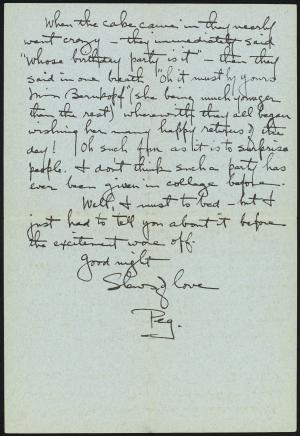 When the cake came in they nearly
went crazy - they immediately said
"Whose birthday party is it" - then they
said in one breath "Oh it must by yours
Miss Bernkopf" (she being much younger
than the rest) wherewith they all began
wishing her many happy returns of the
day! Oh such fun as it is to surprise
people. I dont think such a party has
ever been given in college before.
Well, I must to bed - but I
just had to tell you about it before
the excitement wore off.
Good night
Slews of love
Peg.